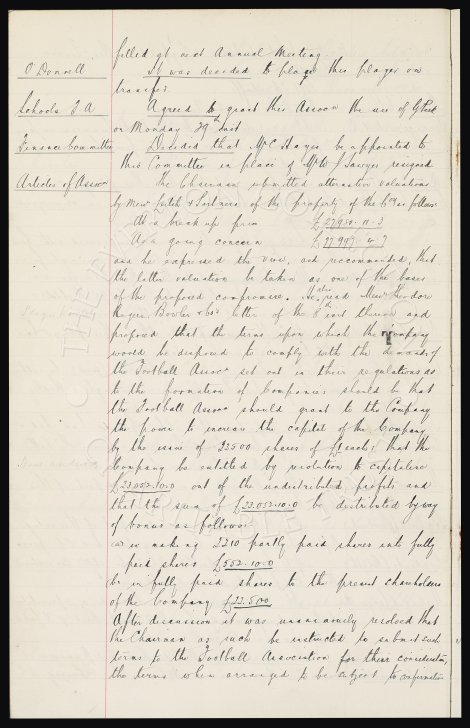 filled at next Annual Meeting
O'Donnell
It was decided to place this player on
transfer.
Schools F A
Agreed to grant this Assocn the use of G Park
on Monday 29th inst
Finance Committee
Decided that Mr C Hayes be appointed to
this Committee in place of Mr W J Sawyer resigned
Articles of Assocn
The Chairman submitted alternative valuations
by Messrs & Partners of the property of the Coy as follows
At a break up price £27950-11-3
As a going concern £37997-4-3
and he expressed the view, and recommended, that
the latter valuation be taken as one of the bases
of the proposed compromise. He also read Messrs Theodore
Rogers, Bowler & Co's letter of the 8 inst thereon and
proposed that the terms upon which the Company
would be disposed to comply with the demands of
the Football Assocn set out in their regulations as
to the formation of Companies should be that
the Football Assocn should grant to the Company
the power to increase the capital of the Company
by the issue of 22500 shares of £1 each: that the
Company be entitled by resolution to capitalise
£23.052.10.0 out of the undistributed profits and
that the sum of £23.052.10.0 be distributed by way
of bonus as follows:-
a in making 2210 partly paid shares into fully
paid shares £552.10.0
b in fully paid shares to the present shareholders
of the Company £22.500
After discussion it was unanimously resolved that
the Chairman as such be instructed to submit such
terms to the Football Association for their consideration,
the terms when arranged to be subject to confirmation